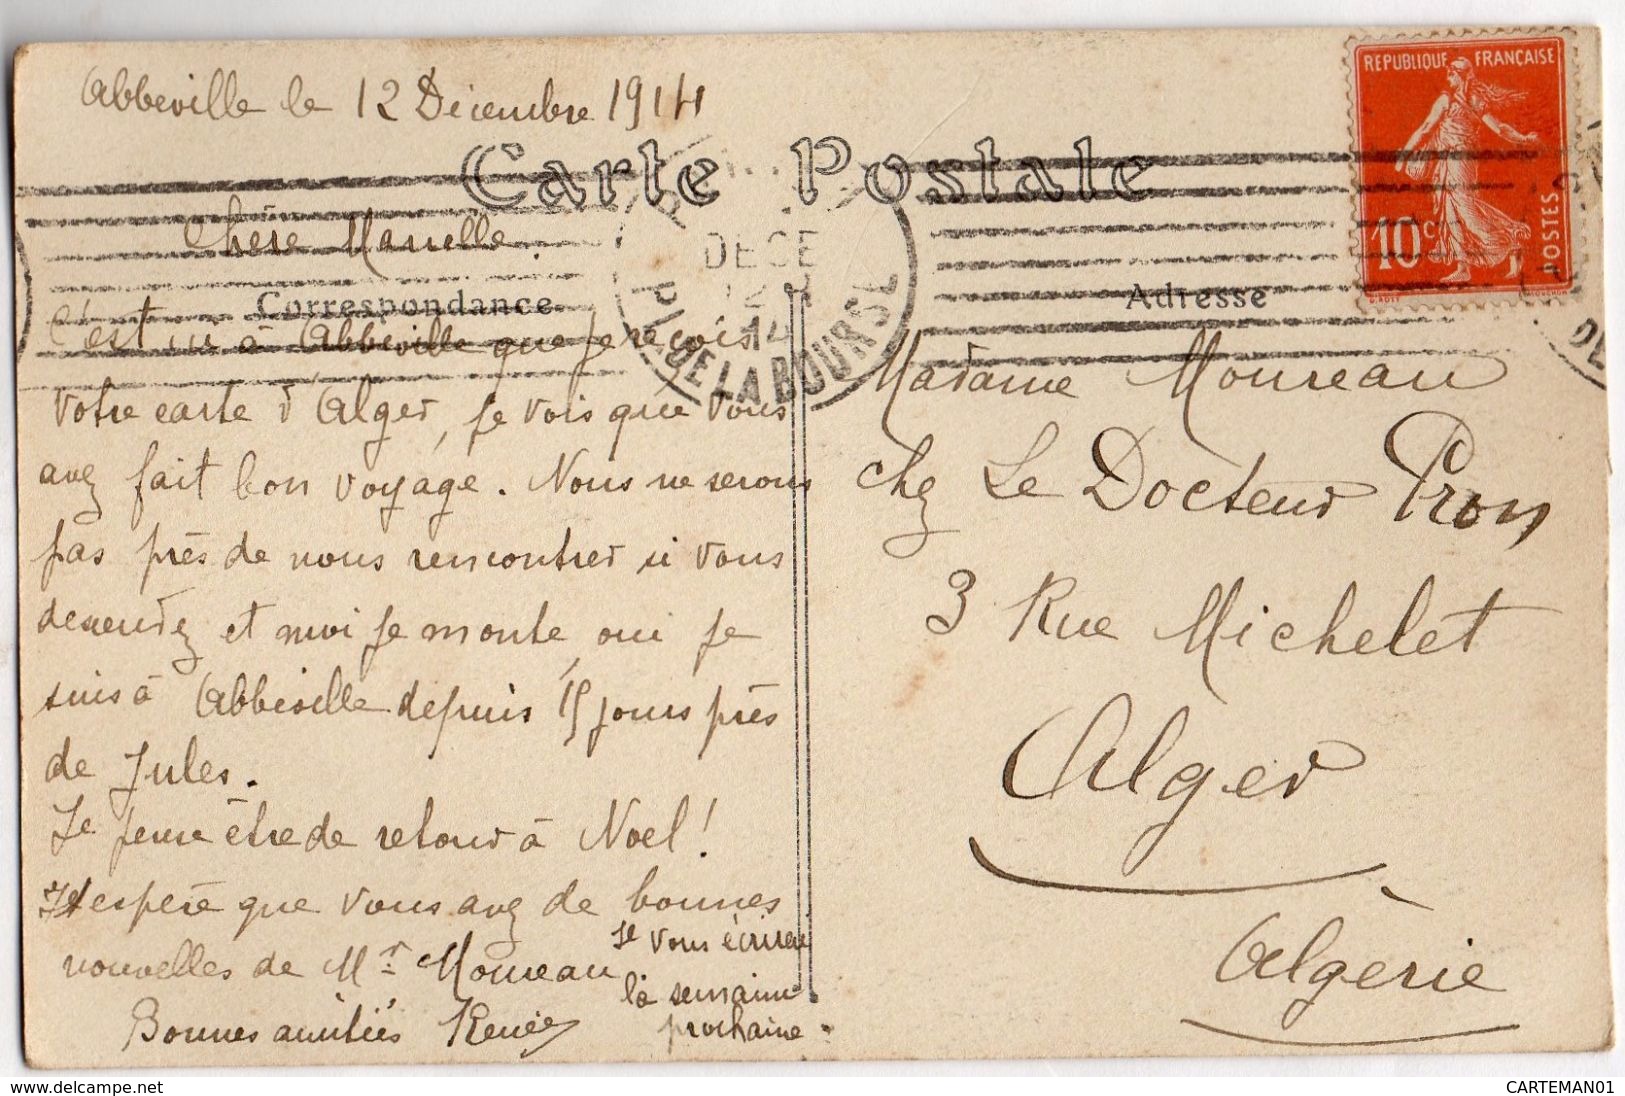 Abbeville le 12 Décembre 1914
Carte Postale
REPUBLIQUE FRANÇAISE
10c
POSTES
DECE
12
14
Pl. DE LA BOURSE
DE
Chère Marcelle.
Correspondance
C'est ici à Abbeville que je reçois
votre carte d'Alger, je vois que vous
avez fait bon voyage. Nous ne serons
pas près de nous rencontrer si vous
descendez et moi je monte, oui je
suis à Abbeville depuis 15 jours près
de Jules.
Je pense être de retour à Noel!
J'espère que vous avez de bonnes
nouvelles de Mr Moureau
Bonnes amitiés Renée
Je vous écrirai
la semaine
prochaine.
Adresse
Madame Moureau
chez Le Docteur Pron
3 Rue Michelet
Alger
Algérie
www.delcampe.net
CARTEMAN01